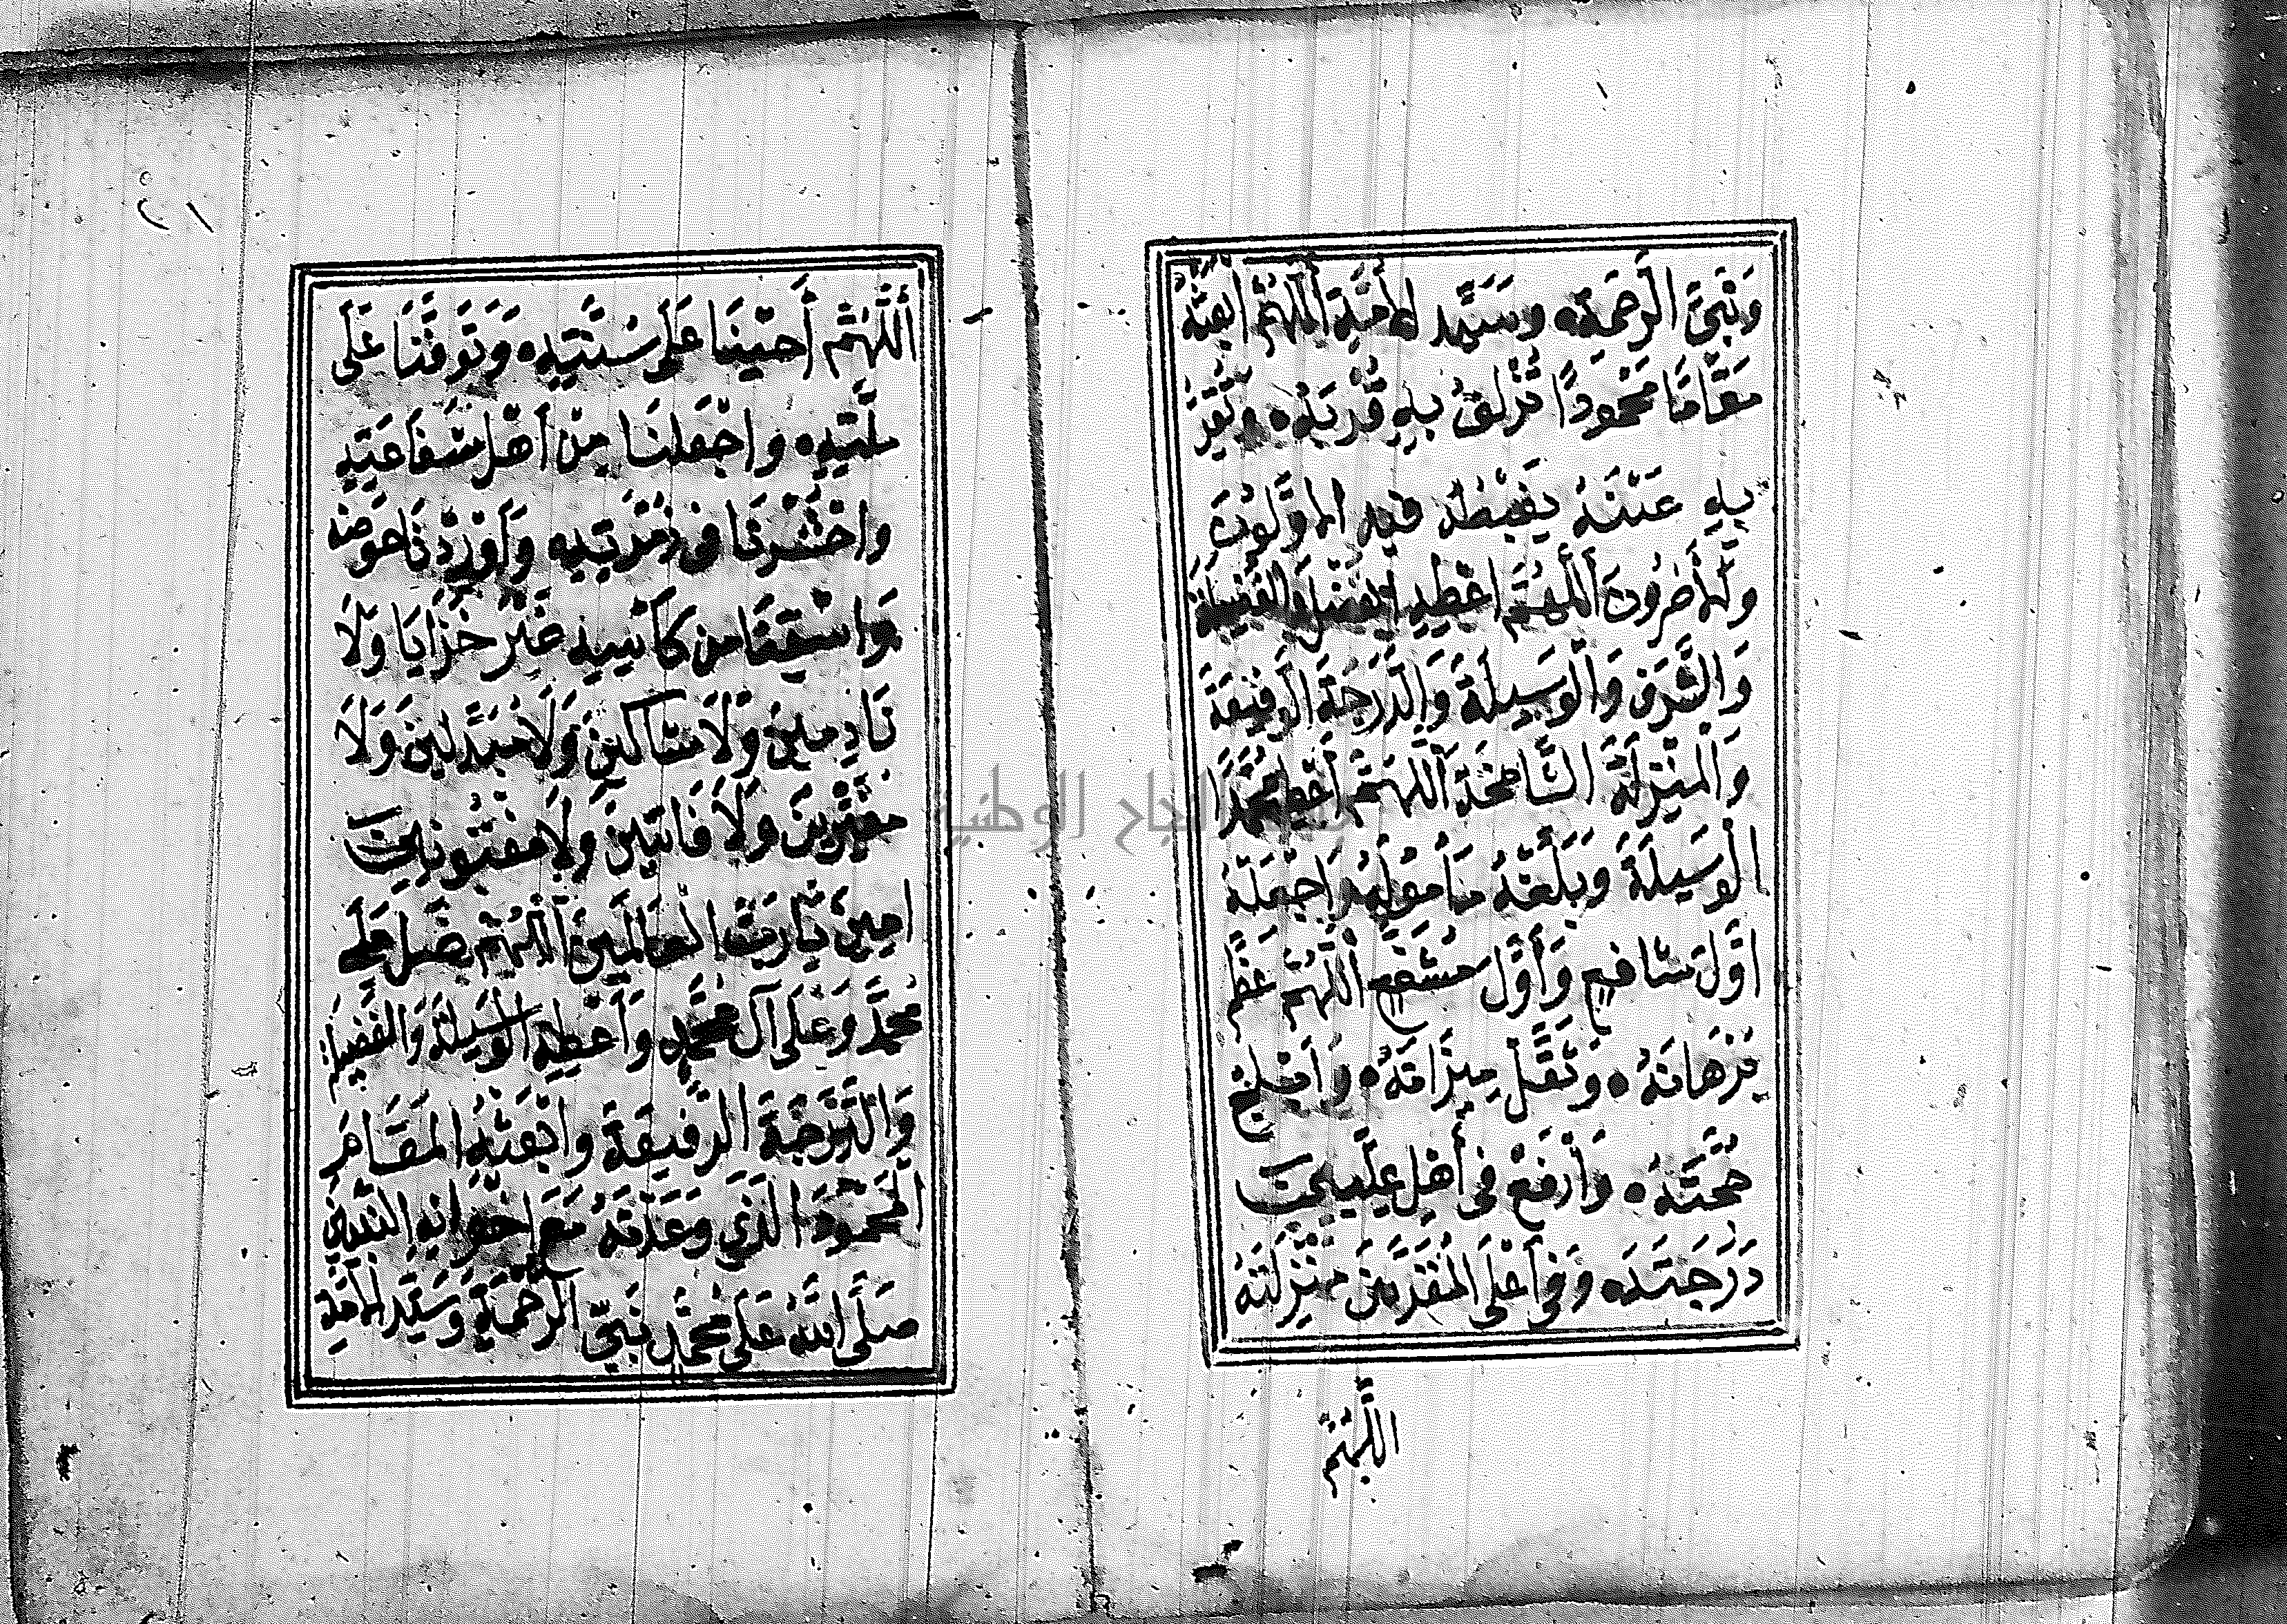 وَنَبِيِّ الرَّحْمَةِ وَسَيِّدِ الأُمَّةِ اَللّٰهُمَّ ابْعَثْهُ
مَقَامًا مَحْمُودًا تُزْلِفُ بِهِ قُرْبَهُ وَتُقِرُّ
بِهِ عَيْنَهُ يَغْبِطُهُ فِيهِ الاَوَّلُونَ
وَالاَخِرُونَ اَللّٰهُمَّ اعْطِهِ الفَضْلَ وَالفَضِيلَةَ
وَالشَّرَفَ وَالْوَسِيلَةَ وَالدَّرَجَةَ الرَّفِيعَةَ
وَالْمَنْزِلَةَ الشَّامِخَةَ اَللّٰهُمَّ أَعْطِ مُحَمَّدًا
الْوَسِيلَةَ وَبَلِّغْهُ مَأْمُولَهُ وَاجْعَلْهُ
اَوَّلَ شَافِعٍ وَأَوَّلَ مُشَفَّعٍ اَللّٰهُمَّ عَظِّمْ
بُرْهَانَهُ وَثَقِّلْ مِيزَانَهُ وَاَفْلِجْ
حُجَّتَهُ وَارْفَعْ فِي أَهْلِ عِلِّيِّينَ
دَرَجَتَهُ وَفِي أَعْلَى الْمُقَرَّبِينَ مَنْزِلَتَهُ
اللّٰهُمَّ
٢١
أَللّٰهُمَّ أَحْيِنَا عَلَى سُنَّتِهِ وَتَوَفَّنَا عَلَى
مِلَّتِهِ وَاجْعَلْنَا مِنْ أَهْلِ شَفَاعَتِهِ
وَاحْشُرْنَا فِي زُمْرَتِهِ وَأَوْرِدْنَا حَوْضَهُ
وَاسْقِنَا مِنْ كَأْسِهِ غَيْرَ خَزَايَا وَلَا
نَادِمِينَ وَلَا شَاكِّينَ وَلَا مُبَدِّلِينَ وَلَا
مُغَيِّرِينَ وَلَا فَاتِنِينَ وَلَا مَفْتُونِينَ
امِينَ يَارَبَّ الْعَالَمِينَ اَللّٰهُمَّ صَلِّ عَلَى
مُحَمَّدٍ وَعَلَى آلِ مُحَمَّدٍ وَأَعْطِهِ الْوَسِيلَةَ وَالْفَضِيلَةَ
وَالدَّرَجَةَ الرَّفِيعَةَ وَابْعَثْهُ الْمَقَامَ
الْمَحْمُودَ الَّذِي وَعَدْتَهُ مَعَ إِخْوَانِهِ النَّبِيِّينَ
صَلَّى اللّٰهُ عَلَى مُحَمَّدٍ نَبِيِّ الرَّحْمَةِ وَسَيِّدِ الأُمَّةِ
النجاح الوطنية